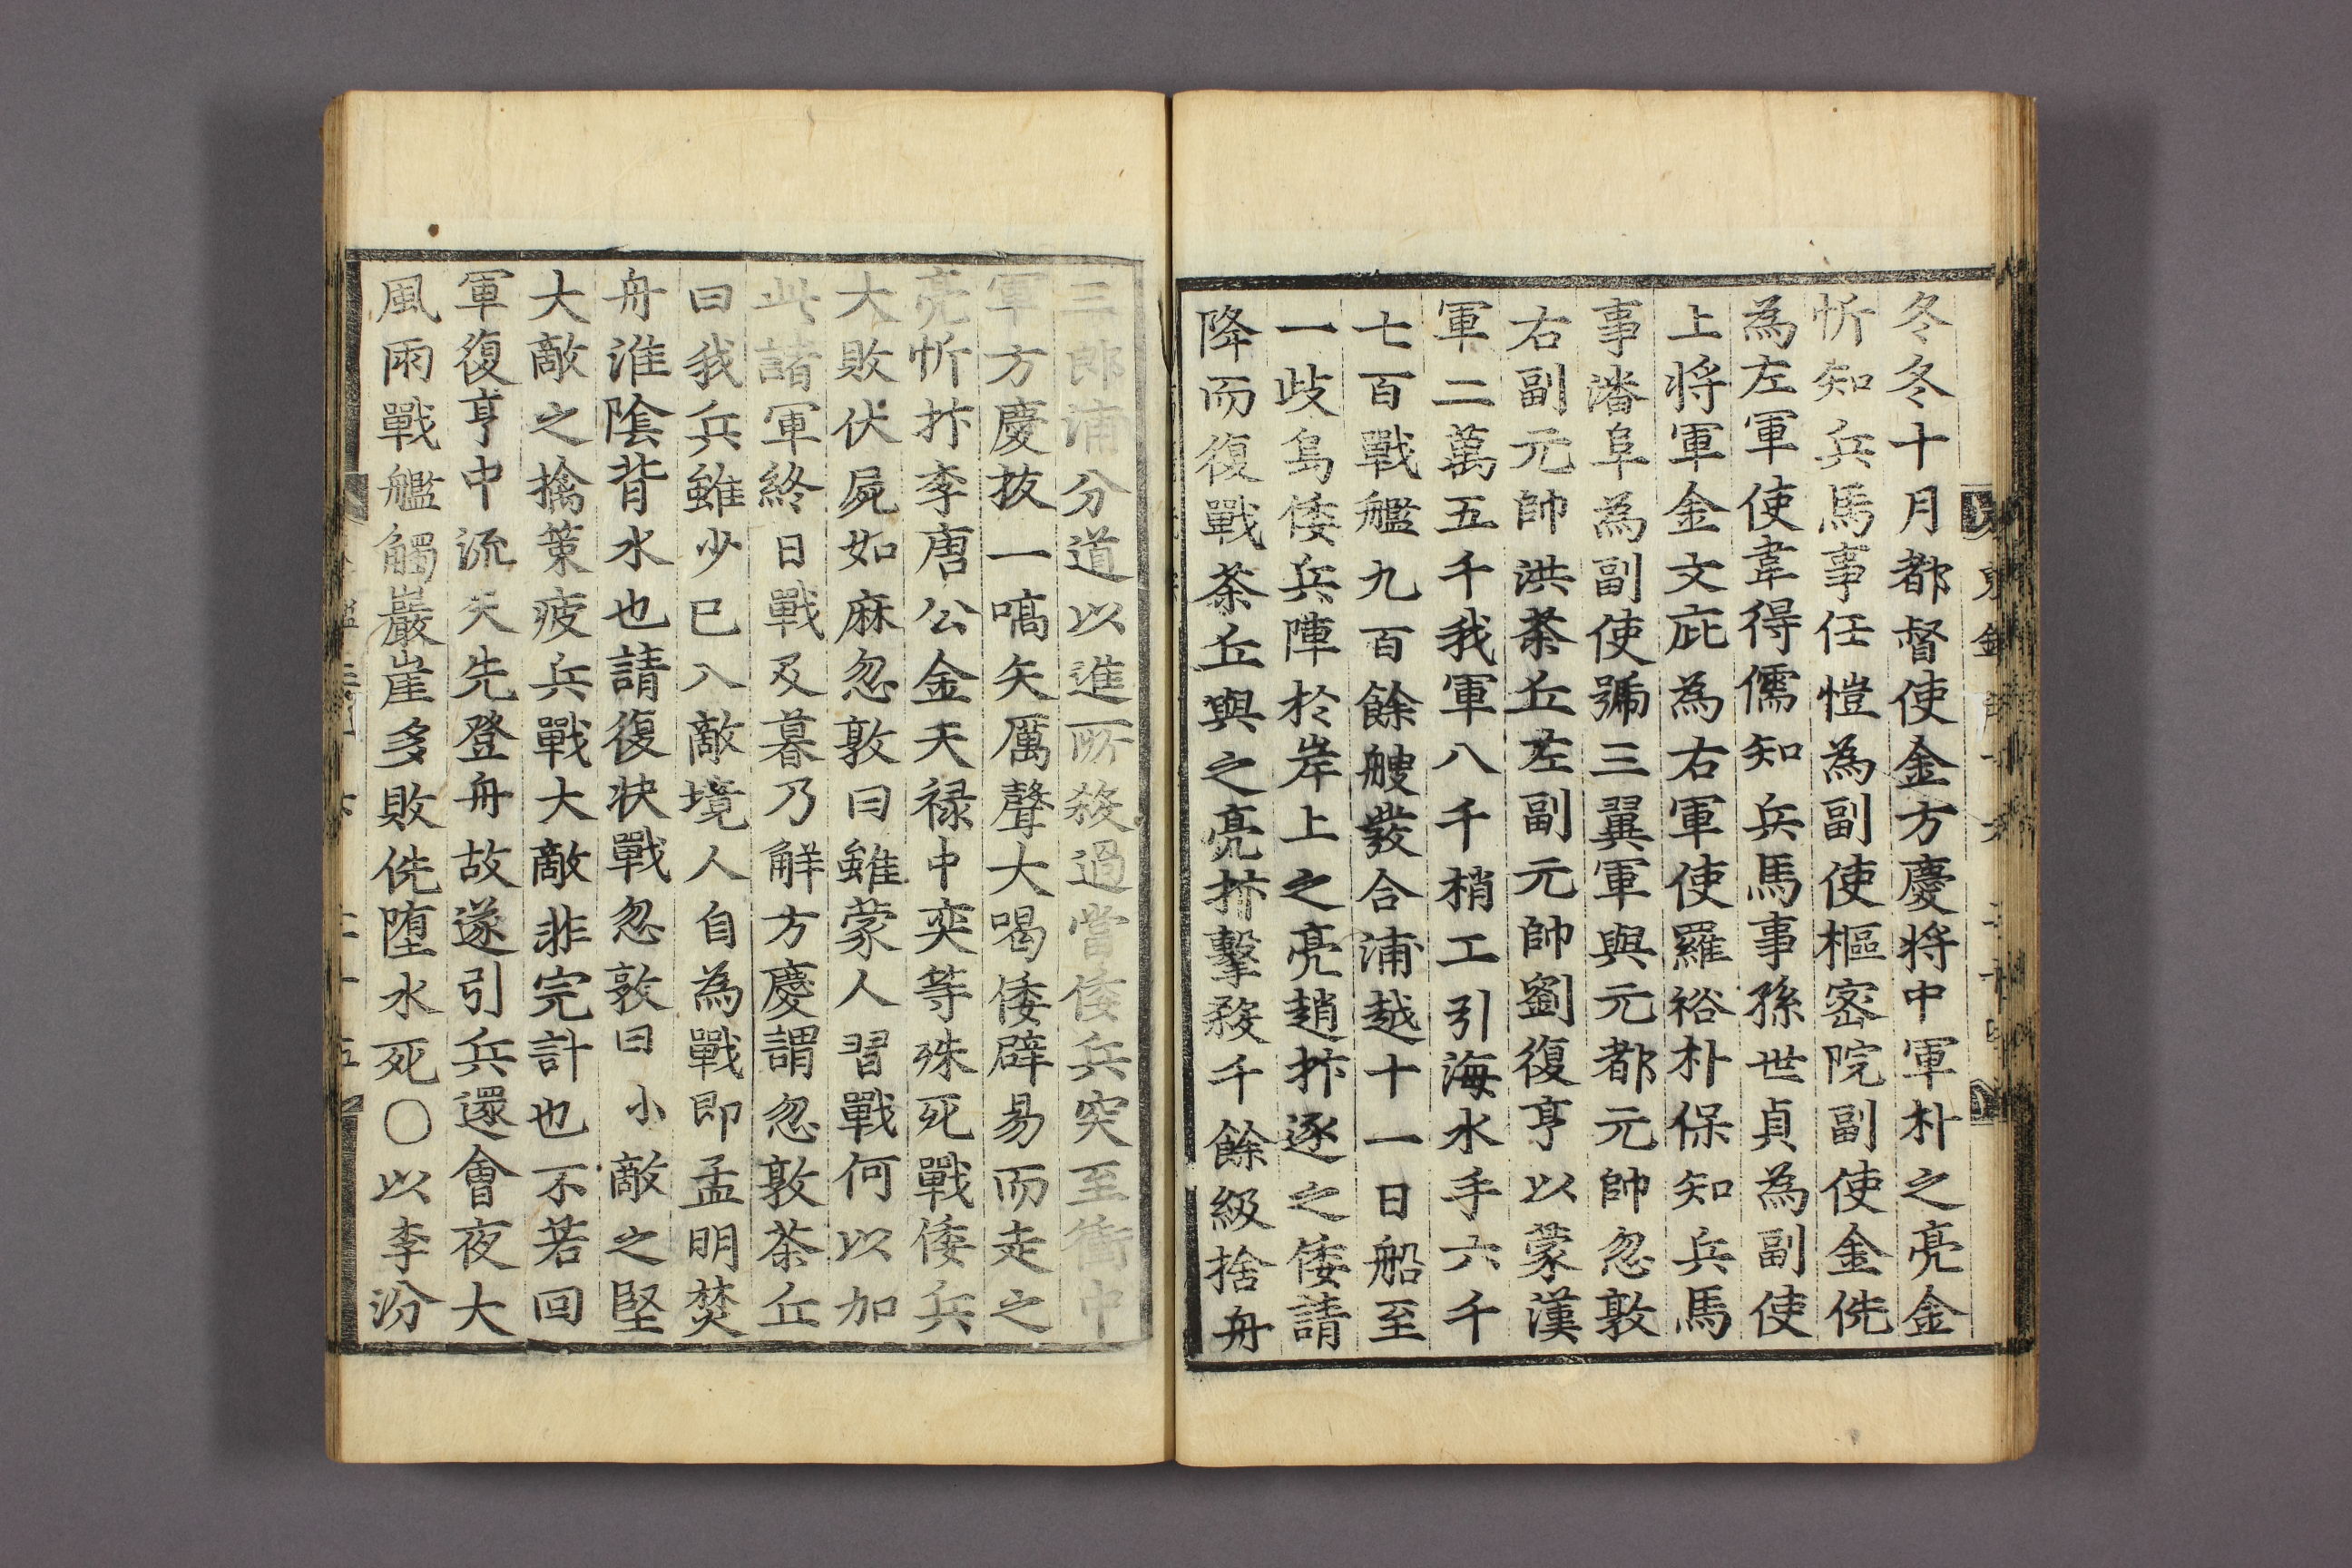 冬冬十月都督使金方慶将中軍朴之亮金
忻知兵馬事任愷為副使樞宻院副使金侁
為左軍使韋得儒知兵馬事孫世貞為副使
上将軍金文庇為右軍使羅裕朴保知兵馬
事潘阜為副使號三翼軍與元都元帥忽敦
右副元帥洪茶丘左副元帥劉復亨以蒙漢
軍二萬五千我軍八千梢工引海水手六千
七百戰艦九百餘艘發合浦越十一日船至
一歧島倭兵陣於岸上之亮趙抃逐之倭請
降而復戰茶丘與之亮抃擊殺千餘級捨舟
三郎浦分道以進所殺過當倭兵突至衝中
軍方慶抜一嗃矢厲聲大喝倭辟易而走之
亮忻抃李唐公金天禄中奕等殊死戰倭兵
大敗伏屍如麻忽敦曰雖蒙人習戰何以加
此諸軍終日戰及暮乃解方慶謂忽敦茶丘
曰我兵雖少已入敵境人自為戰即孟明焚
舟淮陰背水也請復决戰忽敦曰小敵之堅
大敵之擒策疲兵戰大敵非完計也不若回
軍復亨中流矢先登舟故遂引兵還會夜大
風雨戰艦觸巖崖多敗侁堕水死〇以李汾